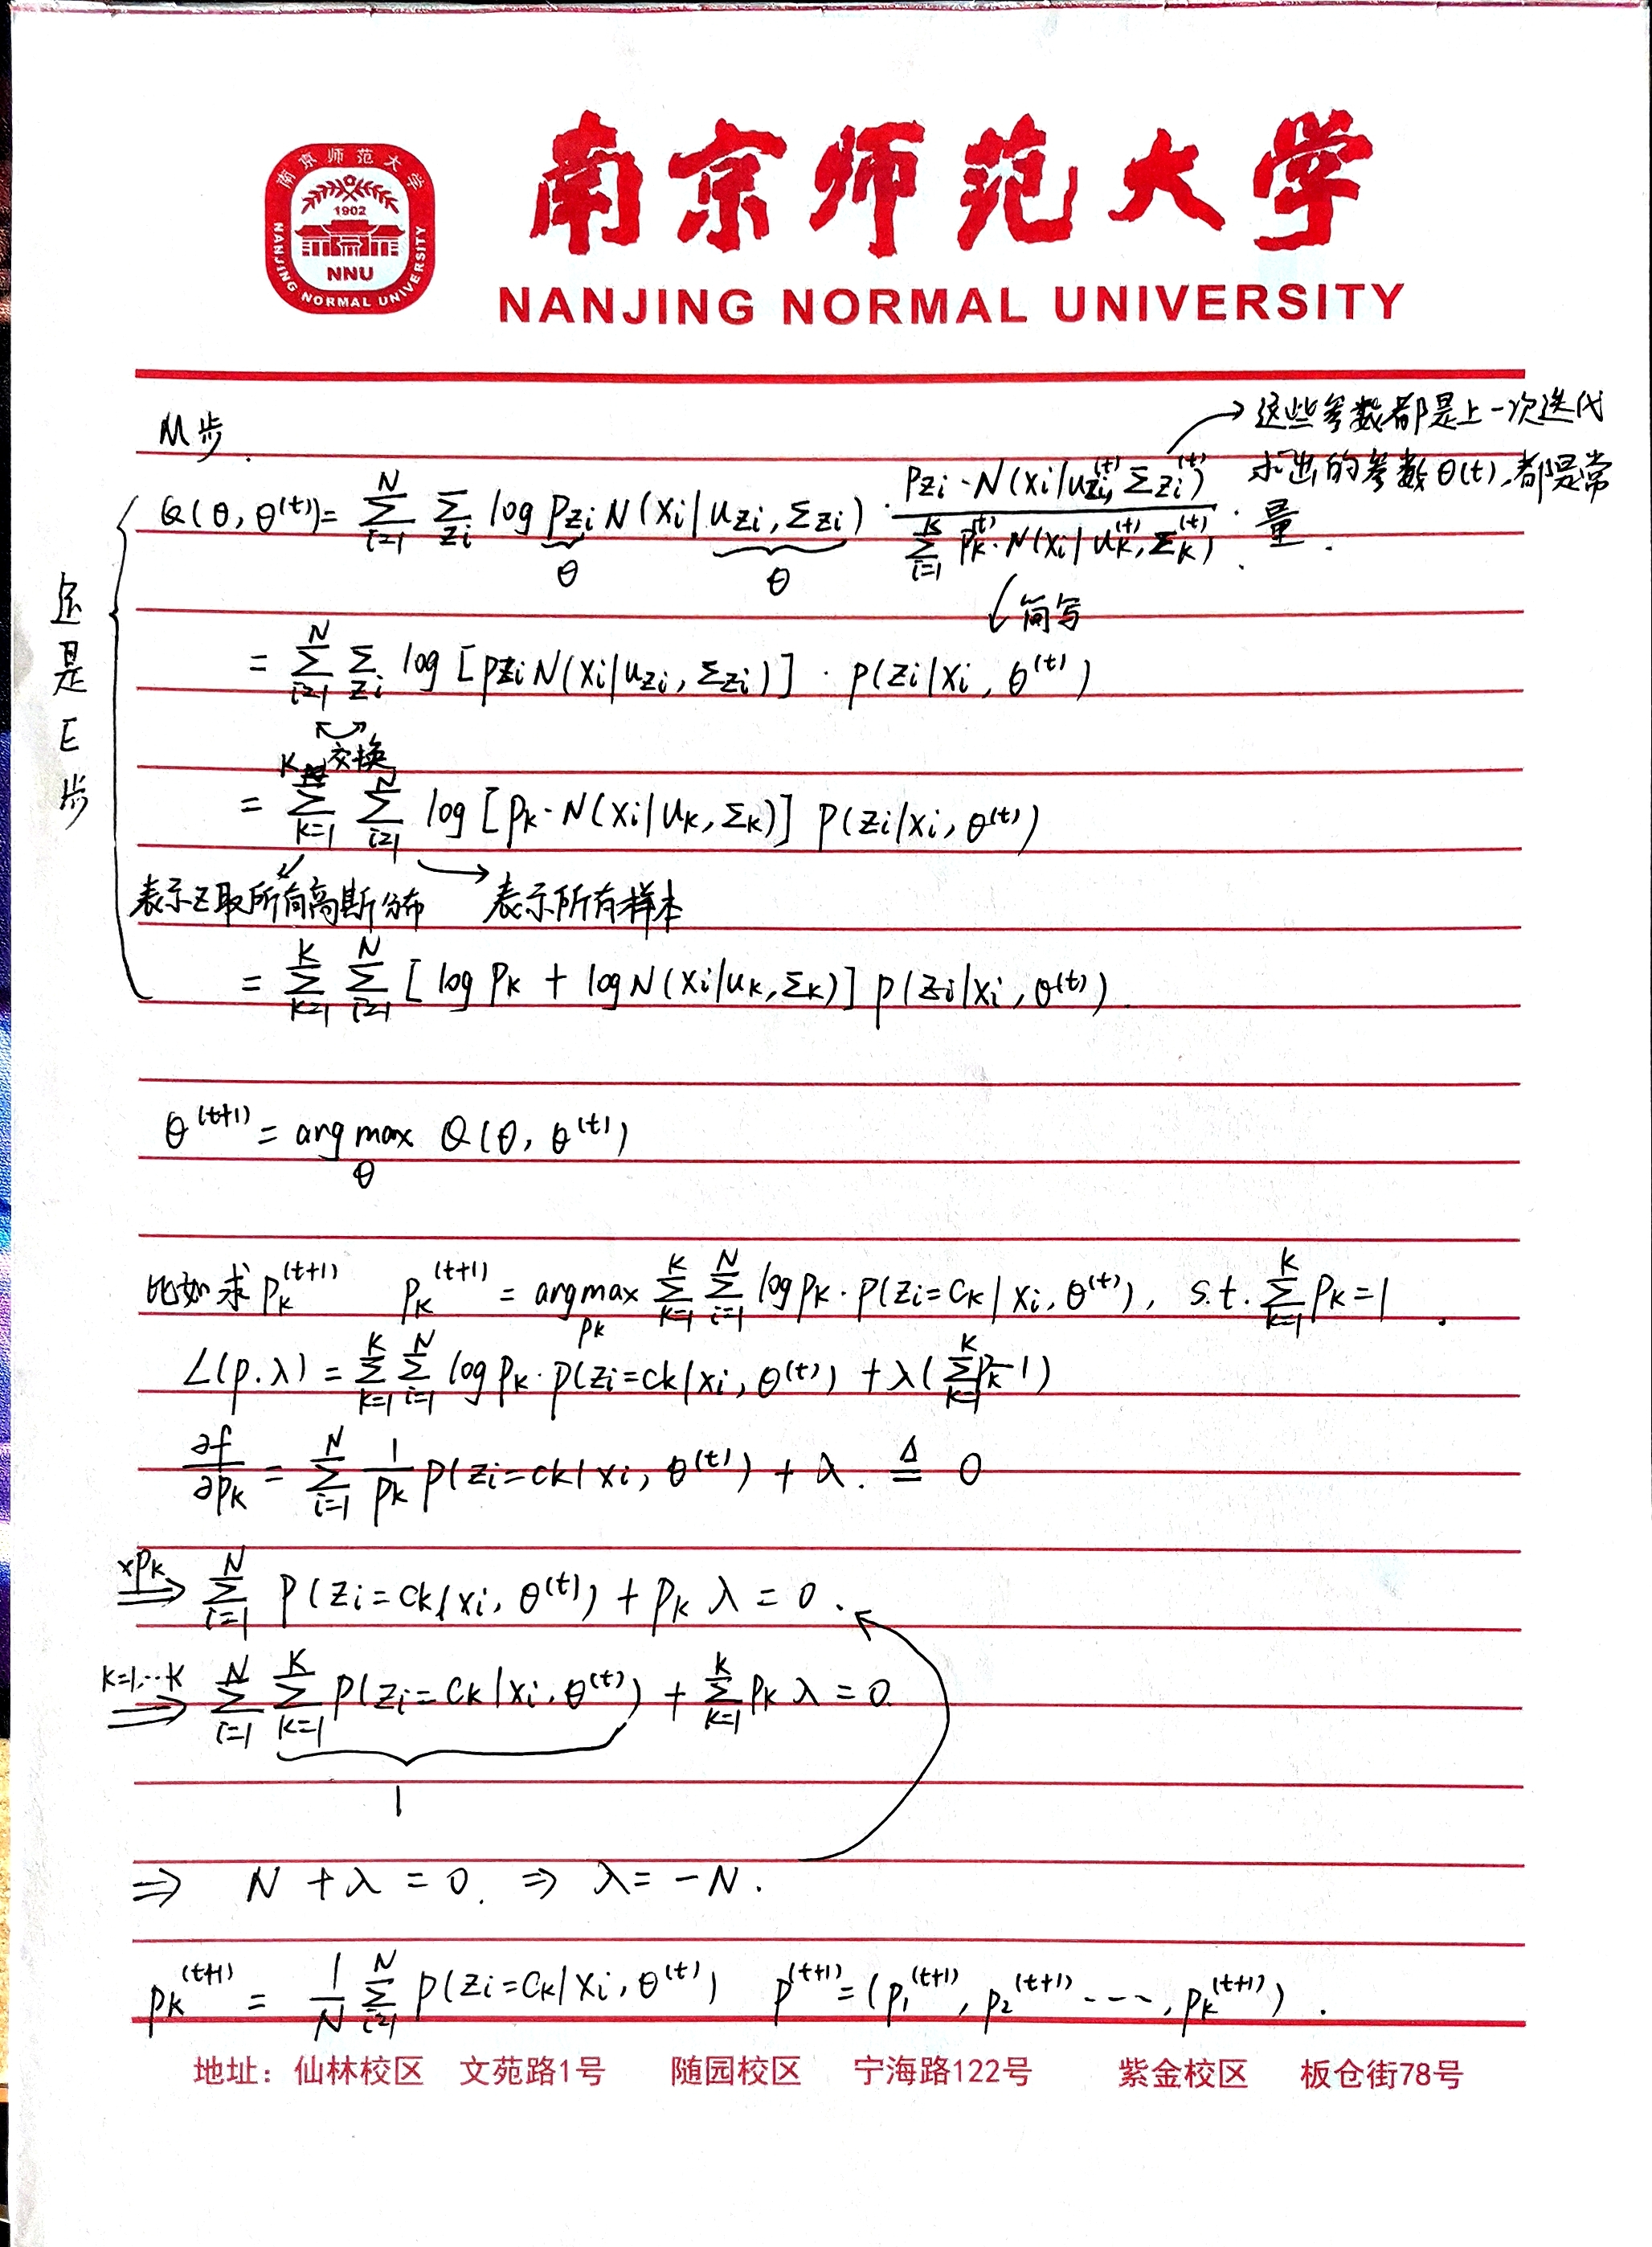 南京师范大学
1902
NNU
NANJING NORMAL UNIVERSITY
南京师范大学
NANJING NORMAL UNIVERSITY
M步.
→ 这些参数都是上一次迭代
求出的参数θ(t),都是常
量.
Q(θ, θ^(t)) = Σ_{i=1}^{N} Σ_{zi} log p_{zi} N(xi|u_{zi}, Σ_{zi}) · (p_{zi} · N(xi|u_{zi}^(t), Σ_{zi}^(t))) / (Σ_{i=1}^{K} p_k^(t) · N(xi|u_k^(t), Σ_k^(t))).
θ θ
↙ 简写
还是E步
= Σ_{i=1}^{N} Σ_{zi} log [p_{zi} N(xi|u_{zi}, Σ_{zi})] · p(zi|xi, θ^(t))
交换
= Σ_{k=1}^{K} Σ_{i=1}^{N} log [p_k · N(xi|u_k, Σ_k)] p(zi|xi, θ^(t))
表示z取所有高斯分布 → 表示所有样本
= Σ_{k=1}^{K} Σ_{i=1}^{N} [log p_k + log N(xi|u_k, Σ_k)] p(zi|xi, θ^(t)).
θ^(t+1) = arg max_θ Q(θ, θ^(t))
比如求 p_k^(t+1) p_k^(t+1) = arg max_{p_k} Σ_{k=1}^{K} Σ_{i=1}^{N} log p_k · p(zi=c_k|xi, θ^(t)), s.t. Σ_{k=1}^{K} p_k = 1.
L(p.λ) = Σ_{k=1}^{K} Σ_{i=1}^{N} log p_k · p(zi=ck|xi, θ^(t)) + λ(Σ_{k=1}^{K} p_k - 1)
∂f/∂p_k = Σ_{i=1}^{N} 1/p_k p(zi=ck|xi, θ^(t)) + λ. ≜ 0
×p_k ⇒ Σ_{i=1}^{N} p(zi=ck|xi, θ^(t)) + p_k λ = 0.
k=1,…K ⇒ Σ_{i=1}^{N} Σ_{k=1}^{K} p(zi=c_k|xi, θ^(t)) + Σ_{k=1}^{K} p_k λ = 0.
1
⇒ N + λ = 0. ⇒ λ = -N.
p_k^(t+1) = 1/N Σ_{i=1}^{N} p(zi=c_k|xi, θ^(t)) p^(t+1) = (p_1^(t+1), p_2^(t+1) ----, p_k^(t+1)).
地址：仙林校区 文苑路1号 随园校区 宁海路122号 紫金校区 板仓街78号